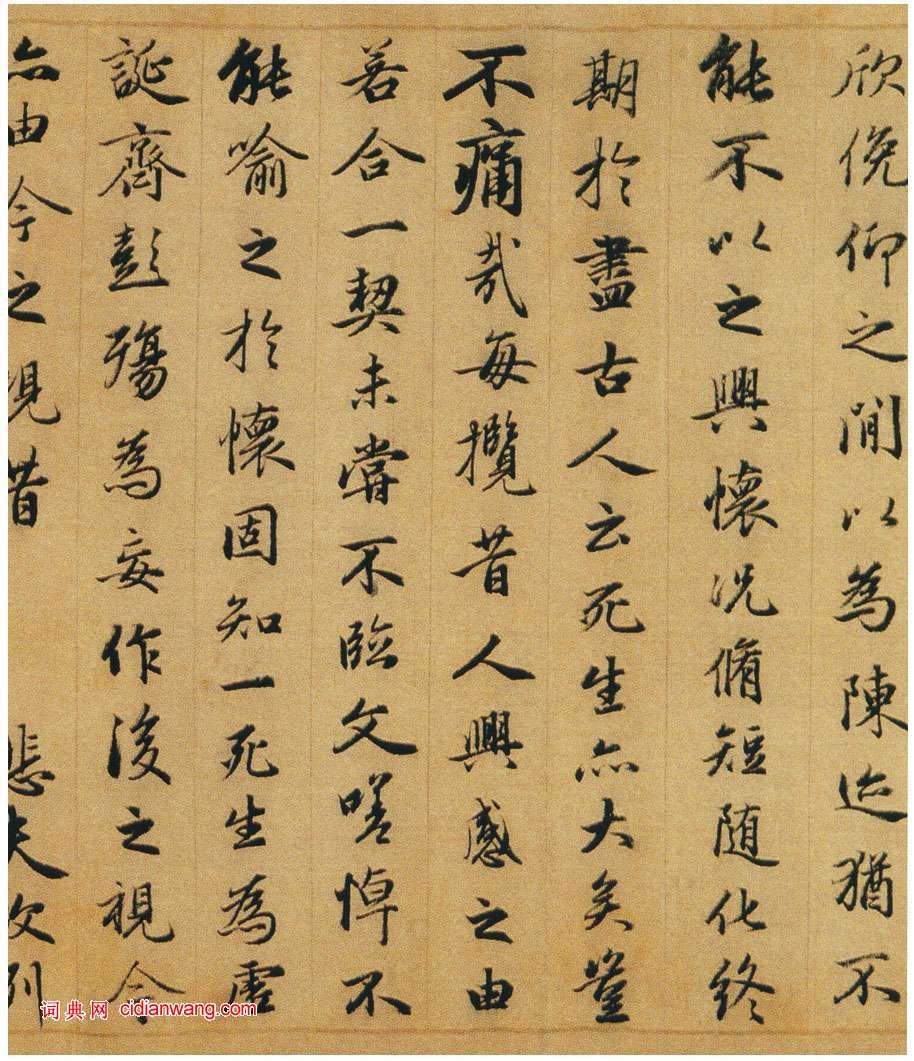 欣俛仰之閒以為陳迹猶不
能不以之興懷况脩短随化終
期於盡古人云死生亦大矣豈
不痛哉每攬昔人興感之由
若合一契未嘗不臨文嗟悼不
能喻之於懷固知一死生為虛
誕齊彭殤為妄作後之視今
亦由今之視昔 悲夫故列
词典网 cidianwang.com